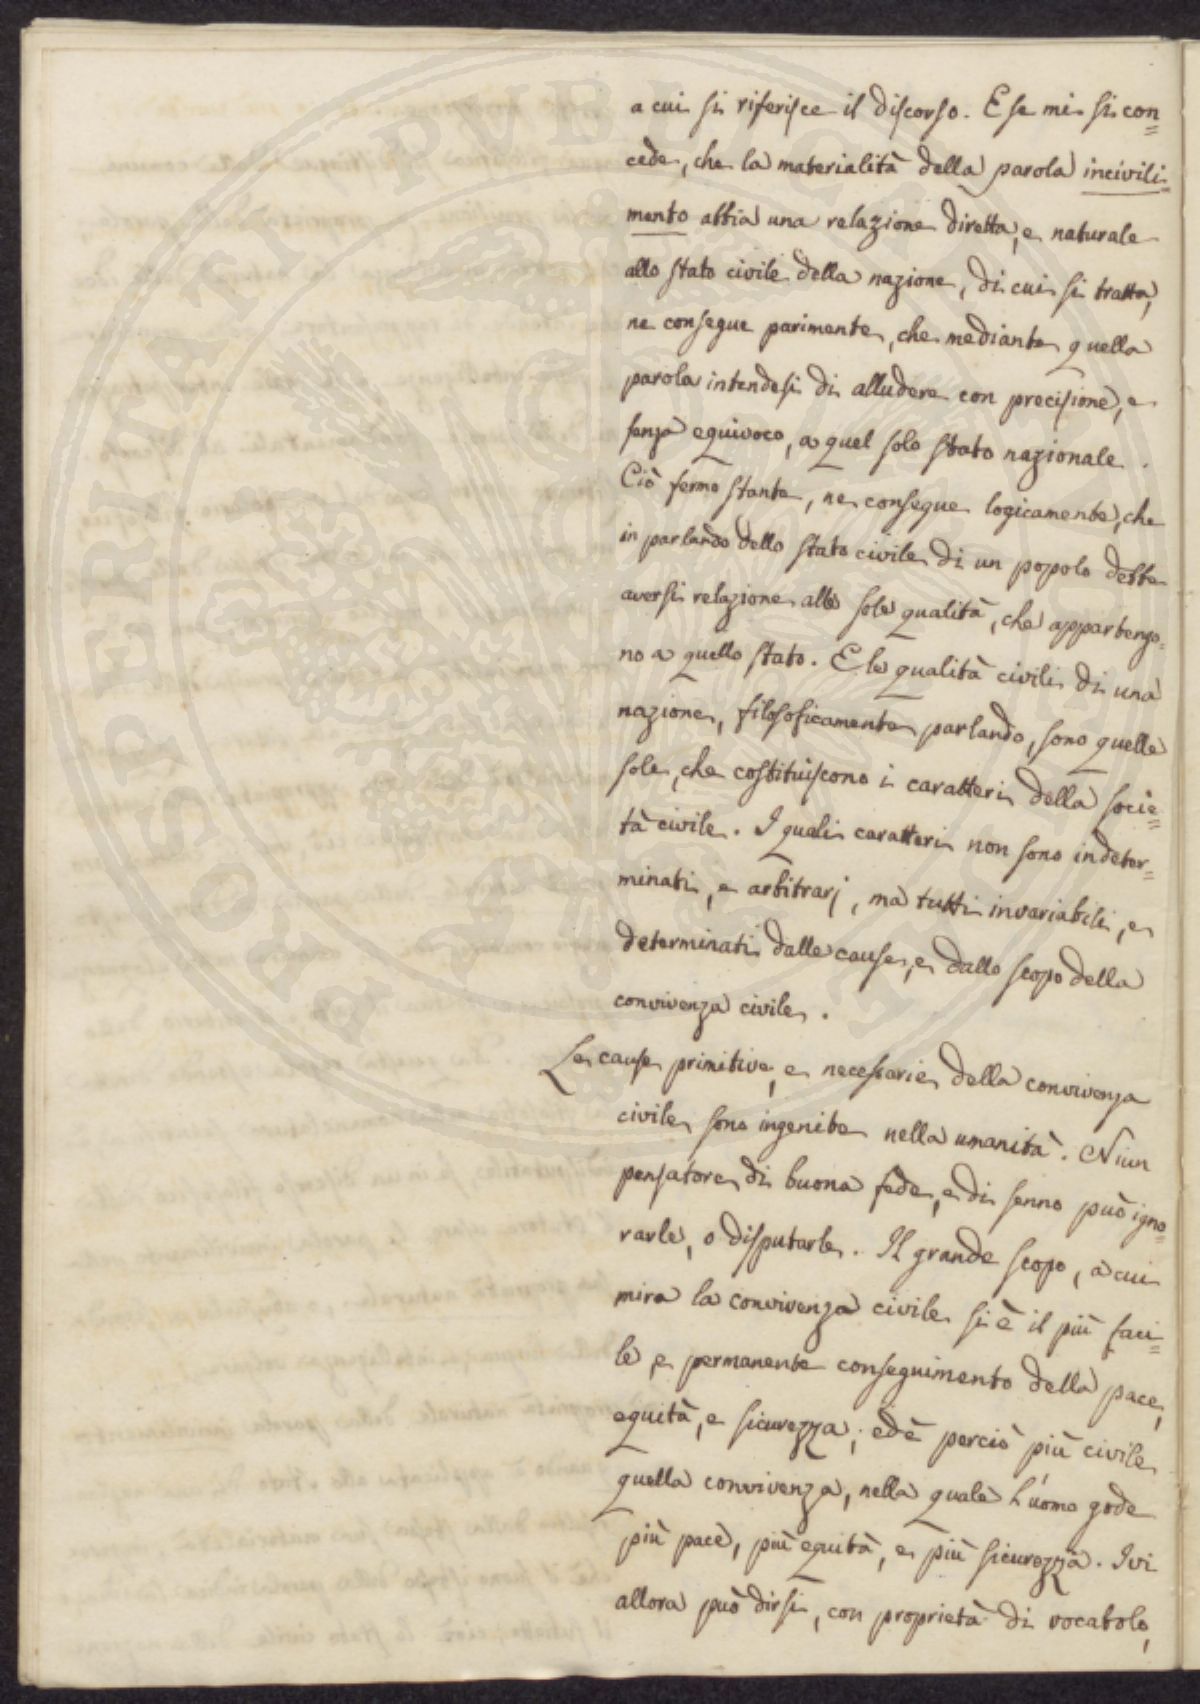 a cui si riferisce il discorso. E se mi si con=
cede, che la materialità della parola incivili=
mento abbia una relazione diretta, e naturale
allo stato civile della nazione, di cui si tratta,
ne consegue parimente, che mediante quella
parola intendesi di alludere con precisione, e
senza equivoco, a quel solo stato nazionale.
Ciò fermo stante, ne consegue logicamente, che
in parlando dello stato civile di un popolo debbe
aversi relazione alle sole qualità, che appartengo=
no a quello stato. E le qualità civili di una
nazione, filosoficamente parlando, sono quelle
sole, che costituiscono i caratteri della socie=
tà civile. I quali caratteri non sono indeter=
minati, e arbitrarj, ma tutti invariabili, e
determinati dalle cause, e dallo scopo della
convivenza civile.
Le cause primitive, e necessarie della convivenza
civile sono ingenite nella umanità. Niun
pensatore di buona fede, e di senno può igno=
rarle, o disputarle. Il grande scopo, a cui
mira la convivenza civile si è il più faci=
le, e permanente conseguimento della pace,
equità, e sicurezza; ed è perciò più civile
quella convivenza, nella quale l'uomo gode
più pace, più equità, e più sicurezza. Ivi
allora può dirsi, con proprietà di vocabolo,
PROSPERITATI PVBLICAE